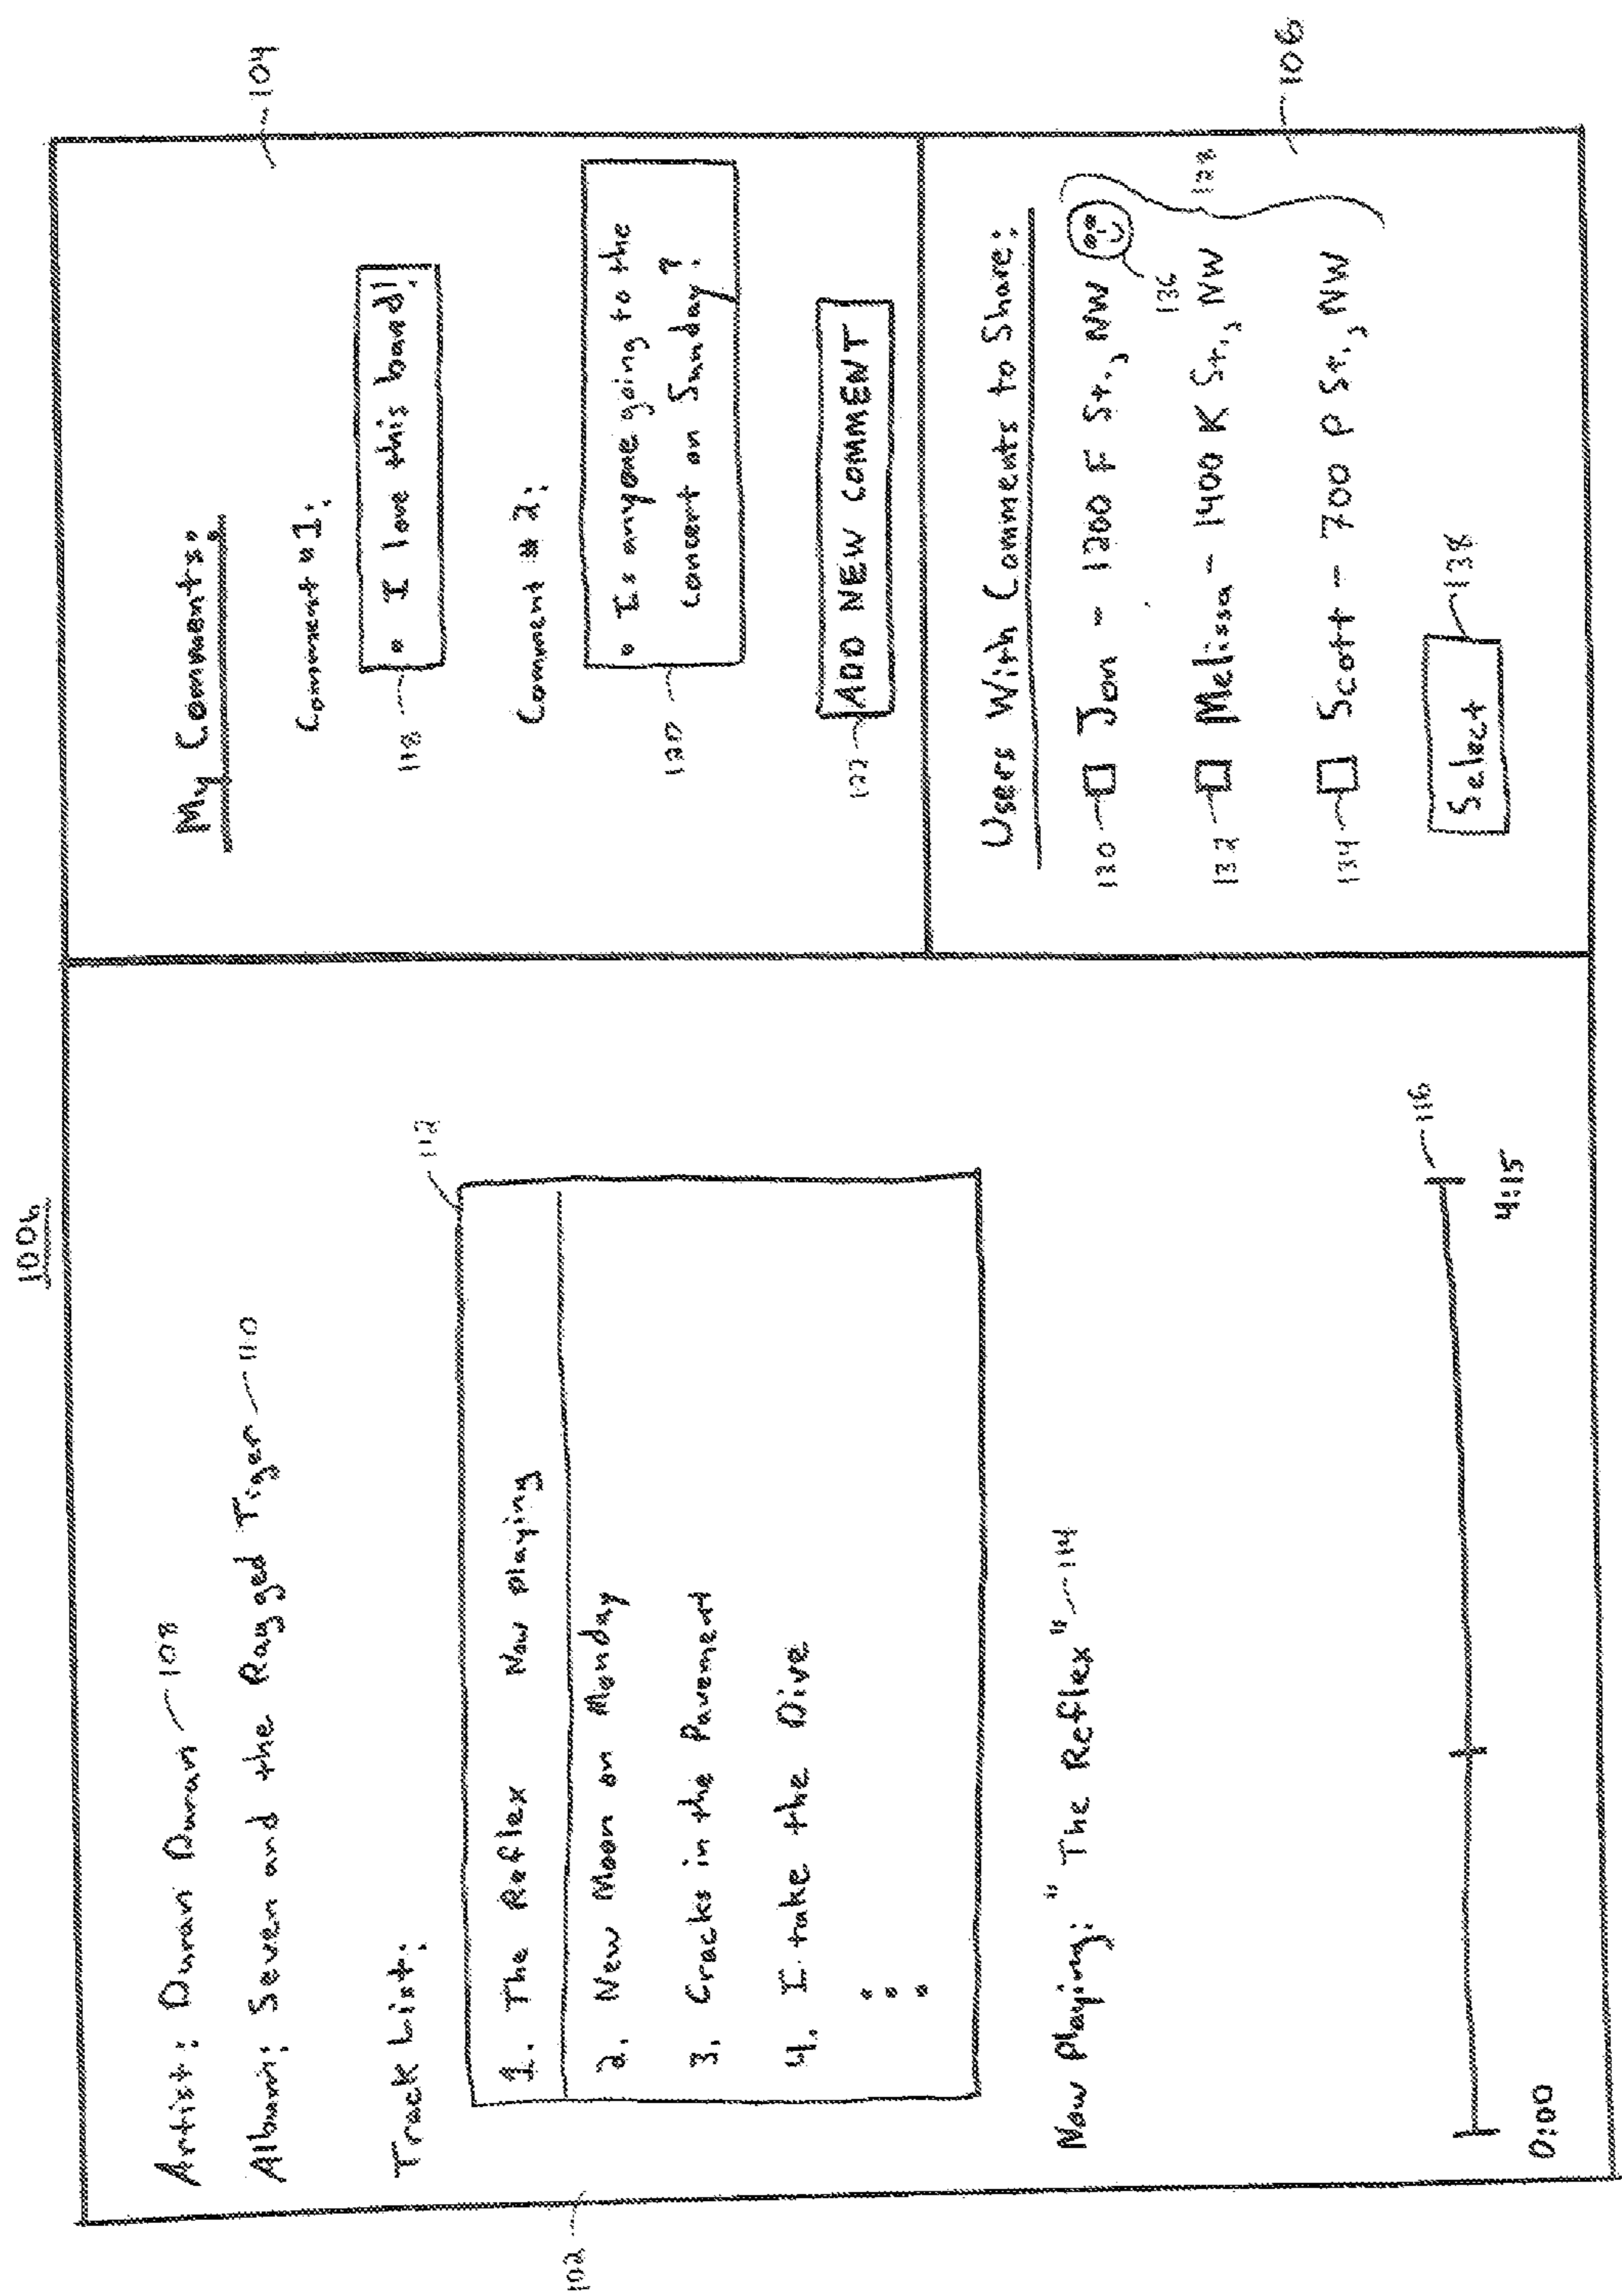 100b
102
Artist: Duran Duran 108
Album: Seven and the Ragged Tiger 110
Track List:
112
1. The Reflex Now Playing
2. New Moon on Monday
3. Cracks in the Pavement
4. I take the Dive
Now Playing: "The Reflex" 114
116
0:00 4:15
104
My Comments:
Comment #1:
118 • I love this band!
Comment #2:
120 • Is anyone going to the
concert on Sunday?
122 ADD NEW COMMENT
106
Users With Comments to Share:
130 Jon - 1200 F St., NW
136
128
132 Melissa - 1400 K St., NW
134 Scott - 700 P St., NW
Select 138